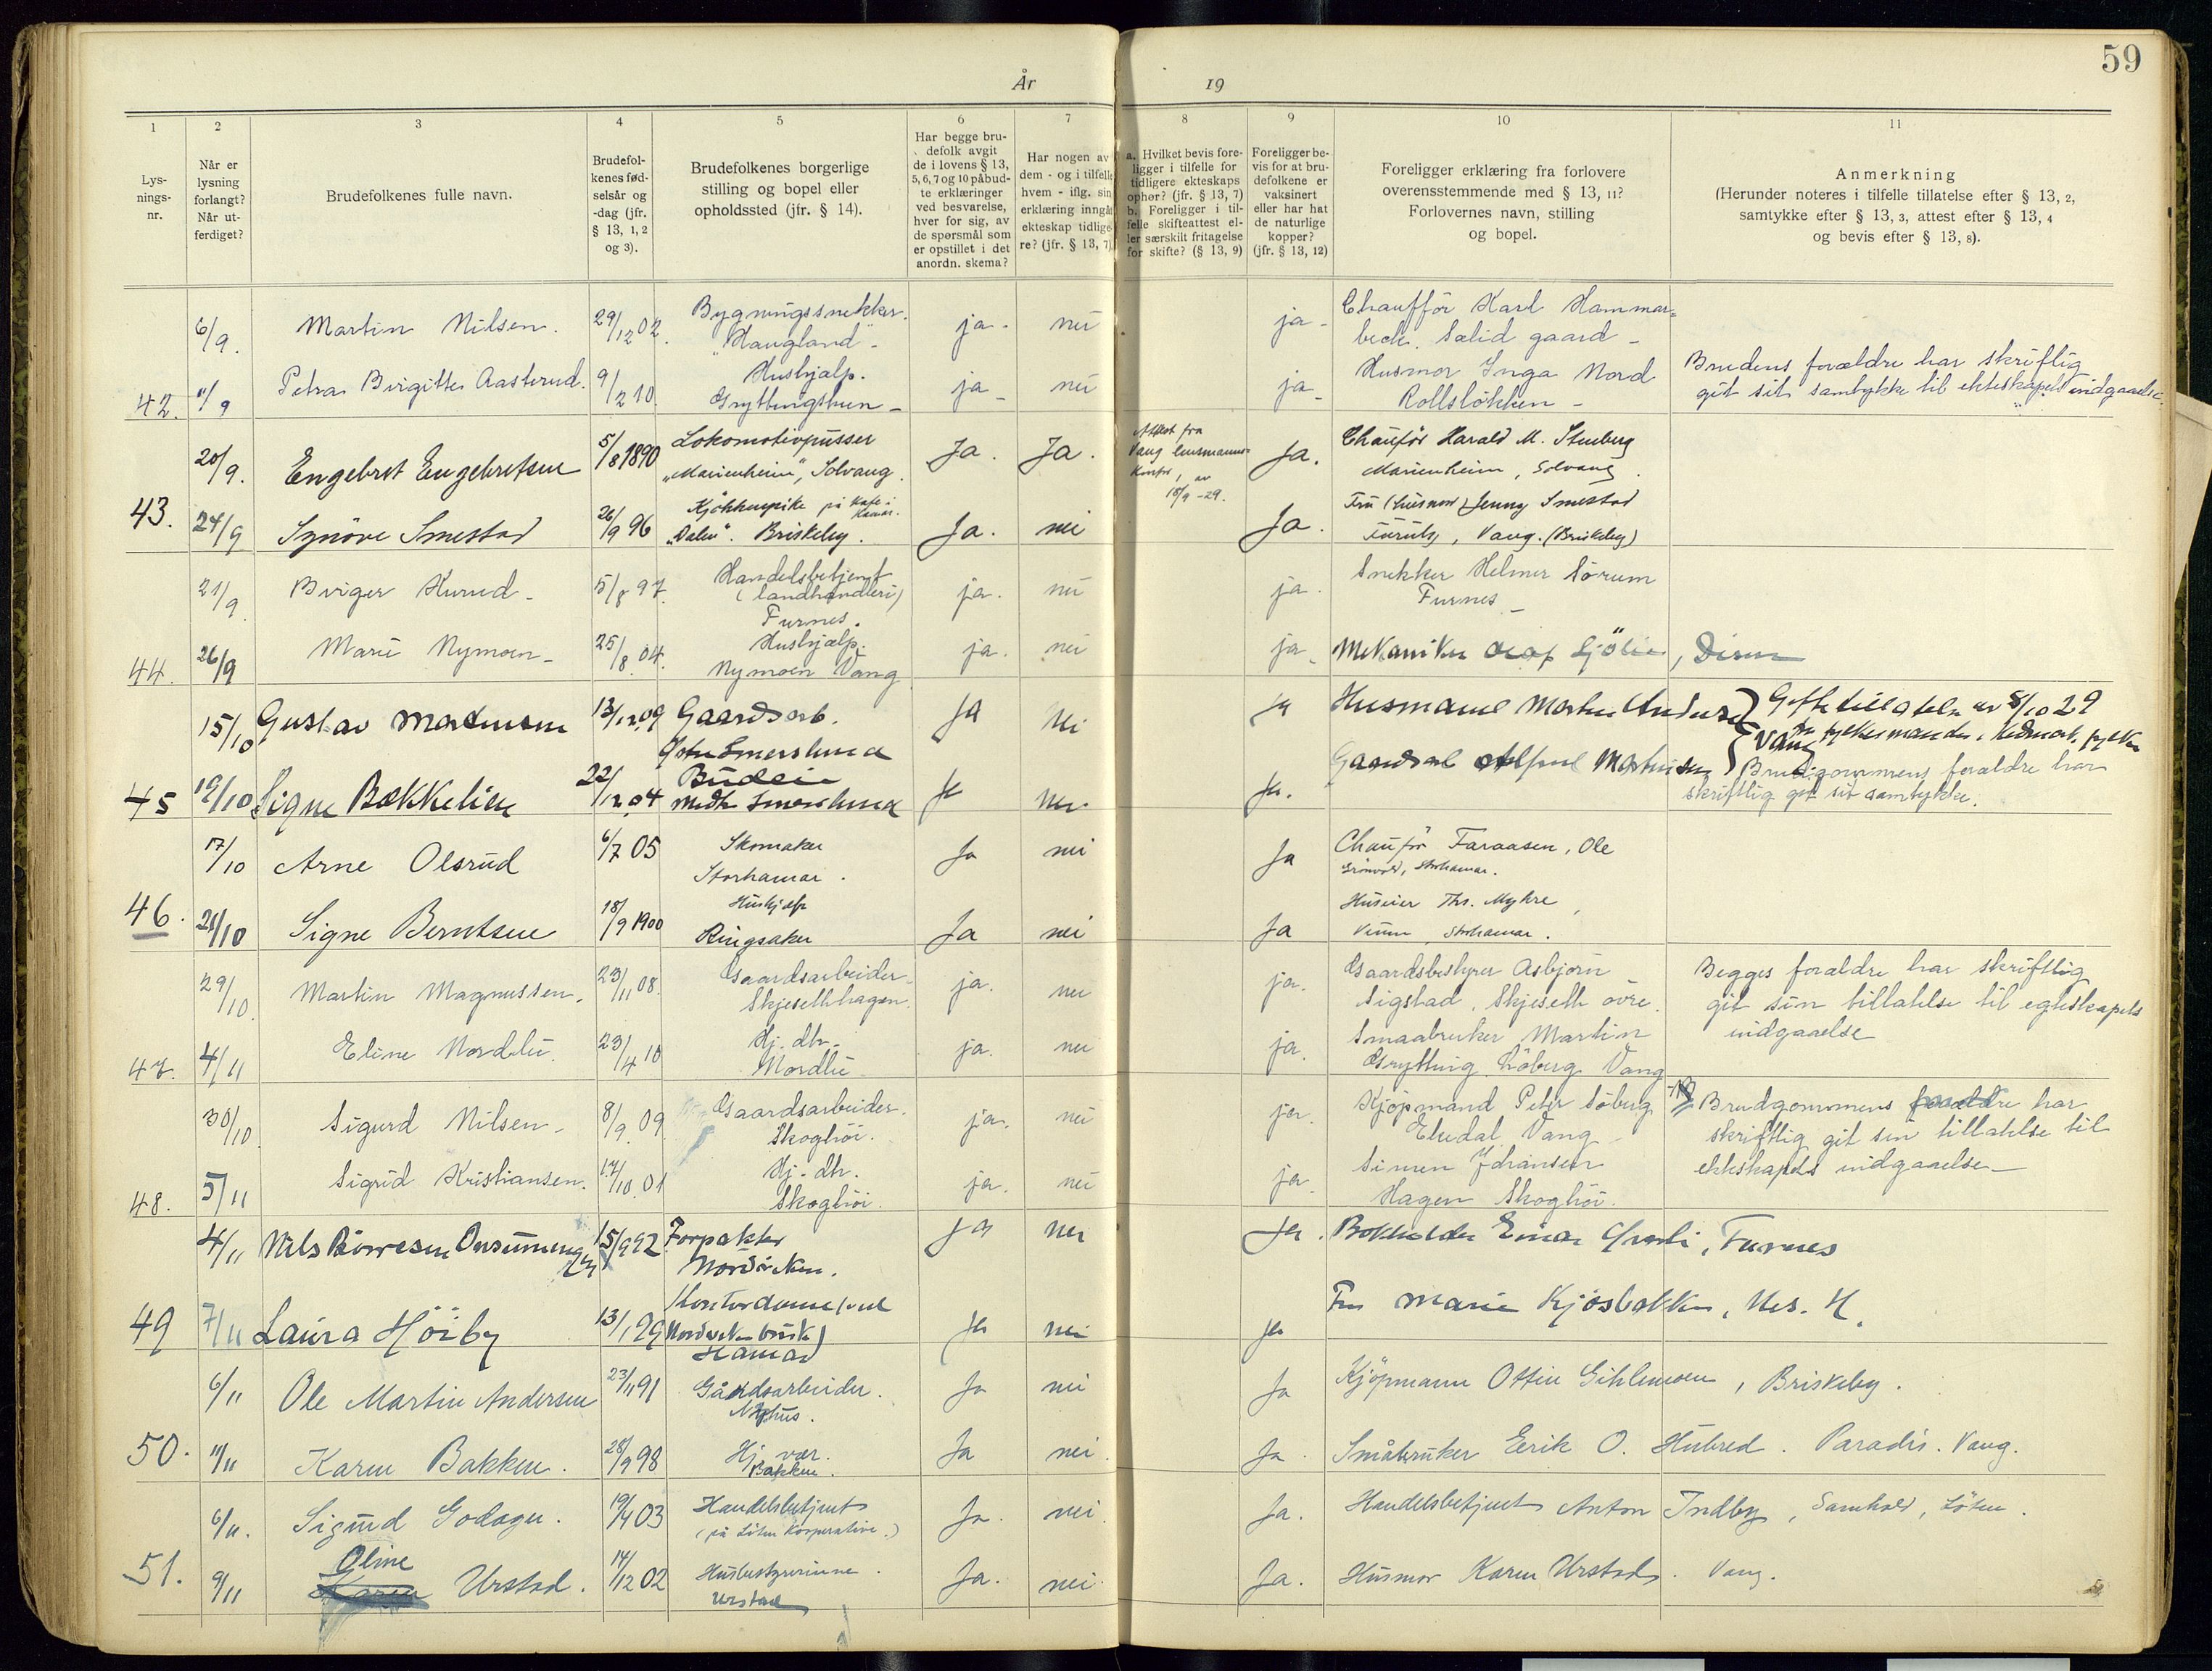 59
År 19
1 2 3 4 5 6 7 8 9 10 11
Lys-
nings-
nr.
Når er
lysning
forlangt?
Når ut-
ferdiget?
Brudefolkenes fulle navn.
Brudefol-
kenes fød-
selsår og
-dag (jfr.
§ 13, 1, 2
og 3).
Brudefolkenes borgerlige
stilling og bopel eller
opholdssted (jfr. § 14).
Har begge bru-
defolk avgit
de i lovens § 13,
5, 6, 7 og 10 påbud-
te erklæringer
ved besvarelse,
hver for sig, av
de spørsmål som
er opstillet i det
anordn. skema?
Har nogen av
dem - og i tilfelle
hvem - iflg. sin
erklæring inngåt
ekteskap tidlige-
re? (jfr. § 13, 7)
a. Hvilket bevis fore-
ligger i tilfelle for
tidligere ekteskaps
ophør? (jfr. § 13, 7)
b. Foreligger i til-
felle skifteattest el-
ler særskilt fritagelse
for skifte? (§ 13, 9)
Foreligger be-
vis for at bru-
defolkene er
vaksinert
eller har hat
de naturlige
kopper?
(jfr. § 13, 12)
Foreligger erklæring fra forlovere
overensstemmende med § 13, 11?
Forlovernes navn, stilling
og bopel.
Anmerkning
(Herunder noteres i tilfelle tillatelse efter § 13, 2,
samtykke efter § 13, 3, attest efter § 13, 4
og bevis efter § 13, 8).
6/9. Martin Nilsen. 29/12 02. Bygningssnekker. ja. nei ja. Chaufför Karl Hammar=
"Haugland" beck. Salid gaard
42. 11/9 Petra Birgitte Aasterud. 9/2 10. Hushjælp. ja nei ja Husmor Inga Nord Brudens forældre har skriftlig
Gryttingstuen Rollsløkken git sit samtykke til ekteskapets indgaaelse.
20/9. Engebret Engebretsen 5/8 1890 Lokomotivpusser Ja. Ja. Attest fra Ja. Chaufför Harald M. Stenberg
"Marienheim", Solvang. Vang lensmanns- Marienheim, Solvang
kontor, av
18/9 -29.
43. 24/9 Synöve Smestad 26/9 96 Kjökkenpike på Kafe i Hamar. Ja. nei Ja. Fru (husmor) Jenny Smestad
"Dalen". Briskeby. Furuly, Vang. (Briskeby)
21/9 Birger Kurud 5/8 97. Handelsbetjent ja. nei ja. Snekker Helmer Sörum
(landhandleri) Furnes
Furnes.
44. 26/9 Marie Nymoen 25/8 04. Hushjælp. ja. nei ja. Mekaniker Olaf Sjölie, Disen
Nymoen Vang
15/10 Gustav Martinsen 13/12 09 Gaardsarb. Ja Nei Ja Husmand Martin Andersen Giftetillatelse av 8/10 29
Smerslund Vang fra fylkesmanden i Hedmark fylke
45 19/10 Signe Bækkelien 22/12 04 Budeie Ja Nei Ja. Gaardsarb Martinsen Brudgommens forældre har
Smerslund skriftlig git sit samtykke.
17/10 Arne Olsrud 6/7 05 Skomaker Ja nei Ja Chaufför Faraasen, Ole
Storhamar. Grönvold, Storhamar.
46. 21/10 Signe Berntsen 18/9 1900 Hushjelp Ja nei Ja Huseier Ths. Myhre,
Ringsaker Storhamar.
29/10. Martin Magnussen. 23/11 08. Gaardsarbeider ja. nei ja. Gaardsbestyrer Asbjörn Begges forældre har skriftlig
Skjesethhagen. Sigstad, Skjeseth övre. git sin tillatelse til egteskapets
47. 4/11 Eline Nordlii. 23/4 10 Hj. dtr. ja. nei ja. Smaabruker Martin indgaaelse
Nordlii Grytting Löberg Vang
30/10. Sigurd Nilsen 8/9. 09. Gaardsarbeider. ja. nei ja. Kjöpmand Peter Söberg Brudgommens forældre har
Skoghöi. Ekedal Vang skriftlig git sin tillatelse til
48. 5/11 Sigrid Kristiansen. 17/10. 01 Hj. dtr. ja. nei ja. Simen Johansen ekteskapets indgaaelse
Skoghöi. Hagen Skoghöi.
4/11 Nils Börresen Onsum 15/9 92 Forpakter Ja nei Ja. Bokholder Einar, Furnes
Nordviken.
49 7/11 Laura Höiby 13/1 99 Kontordame (ved Ja nei Ja Fru Marie Kjösbakken, Nes. H.
Nordviken bruk)
Hamar
6/11 Ole Martin Andersen 23/11 91 Gårdsarbeider. Ja nei Ja Kjöpmann Ottin Gihlemoen, Briskeby.
Nyhus.
50. 11/11 Karen Bakken. 28/9 98 Hj. vær. Ja nei. Ja. Småbruker Eerik O. Hubred. Paradis. Vang.
Bakken.
6/11. Sigurd Godager. 19/4 03 Handelsbetjent Ja. nei. Ja. Handelsbetjent Anton Indby, Samhold, Löten.
(på Löten Kooperative.)
51. 9/11 Oline Karen Urstad. 14/12 02 Husbestyrerinne. Ja. nei. Ja. Husmor Karen Urstad. Vang.
Urstad